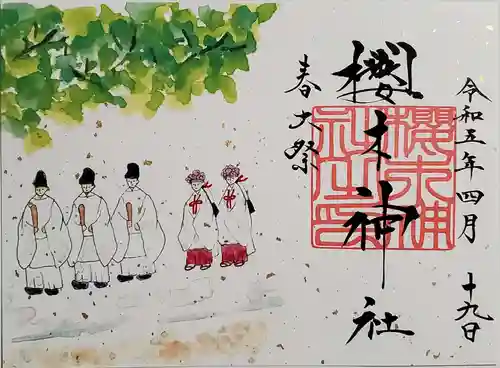 令和五年 四月 十九日
櫻木神社
春大祭
櫻木神社之印